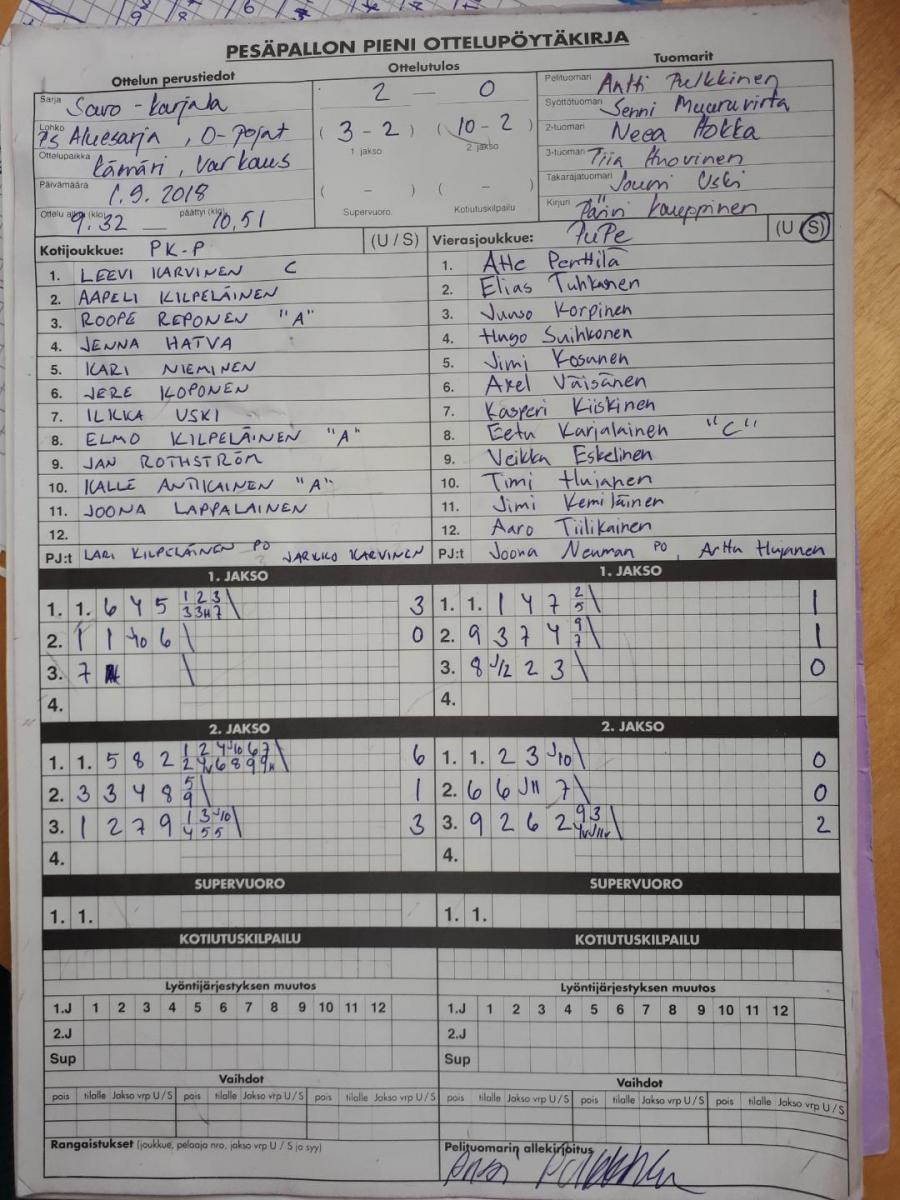 PESÄPALLON PIENI OTTELUPÖYTÄKIRJA
Ottelun perustiedot
Sarja Savo-Karjala
Lohko P5 Aluesarja, D-pojat
Ottelupaikka Kämäri, Varkaus
Päivämäärä 1.9.2018
Ottelu alkoi (klo) 9.32 — päättyi (klo) 10,51
Ottelutulos
2 — 0
(3-2) (10-2)
1 jakso 2. jakso
( - ) ( - )
Supervuoro. Kotiutuskilpailu
Tuomarit
Pelituomari Antti Pulkkinen
Syöttötuomari Senni Muuruvirta
2-tuomari Neea Hokka
3-tuomari Tiia Huovinen
Takarajatuomari Jouni Uski
Kirjuri Päivi Kauppinen
Kotijoukkue: PK-P (U / S)
1. LEEVI KARVINEN C
2. AAPELI KILPELÄINEN
3. ROOPE REPONEN "A"
4. JENNA HATVA
5. KARI NIEMINEN
6. JERE KOPONEN
7. ILKKA USKI
8. ELMO KILPELÄINEN "A"
9. JAN ROTHSTRÖM
10. KALLE ANTIKAINEN "A"
11. JOONA LAPPALAINEN
12.
PJ:t LARI KILPELÄINEN PO JARKKO KARVINEN
Vierasjoukkue: PuPe (U / S)
1. Atte Penttilä
2. Elias Tuhkanen
3. Juuso Korpinen
4. Hugo Suihkonen
5. Jimi Kosunen
6. Axel Väisänen
7. Kasperi Kiiskinen
8. Eetu Karjalainen "C"
9. Veikka Eskelinen
10. Timi Hujanen
11. Jimi Kemiläinen
12. Aaro Tiilikainen
PJ:t Joona Neuman PO, Arttu Hujanen
1. JAKSO
1. 1. 6 4 5 1 2 3 \ 3
3 3H 7
2. 1 1 J10 6 \ 0
3. 7 \
4.
1. JAKSO
1. 1. 1 4 7 2 \ 1
5
2. 9 3 7 4 9 \ 1
7
3. 8 J12 2 3 \ 0
4.
2. JAKSO
1. 1. 5 8 2 1 2 4 J10 6 7 \ 6
2 4v 6 8 9 9H
2. 3 3 4 8 5 \ 1
9
3. 1 2 7 9 1 3 J10 \ 3
4 5 5
4.
2. JAKSO
1. 1. 2 3 J10 \ 0
2. 6 6 J11 7 \ 0
3. 9 2 6 2 9 3 \ 2
4v J11v
4.
SUPERVUORO
1. 1.
SUPERVUORO
1. 1.
KOTIUTUSKILPAILU
KOTIUTUSKILPAILU
Lyöntijärjestyksen muutos
1.J 1 2 3 4 5 6 7 8 9 10 11 12
2.J
Sup
Lyöntijärjestyksen muutos
1.J 1 2 3 4 5 6 7 8 9 10 11 12
2.J
Sup
Vaihdot
pois tilalle Jakso vrp U / S pois tilalle Jakso vrp U / S pois tilalle Jakso vrp U / S
Vaihdot
pois tilalle Jakso vrp U / S pois tilalle Jakso vrp U / S pois tilalle Jakso vrp U / S
Rangaistukset (joukkue, pelaaja nro, jakso vrp U / S ja syy)
Pelituomarin allekirjoitus